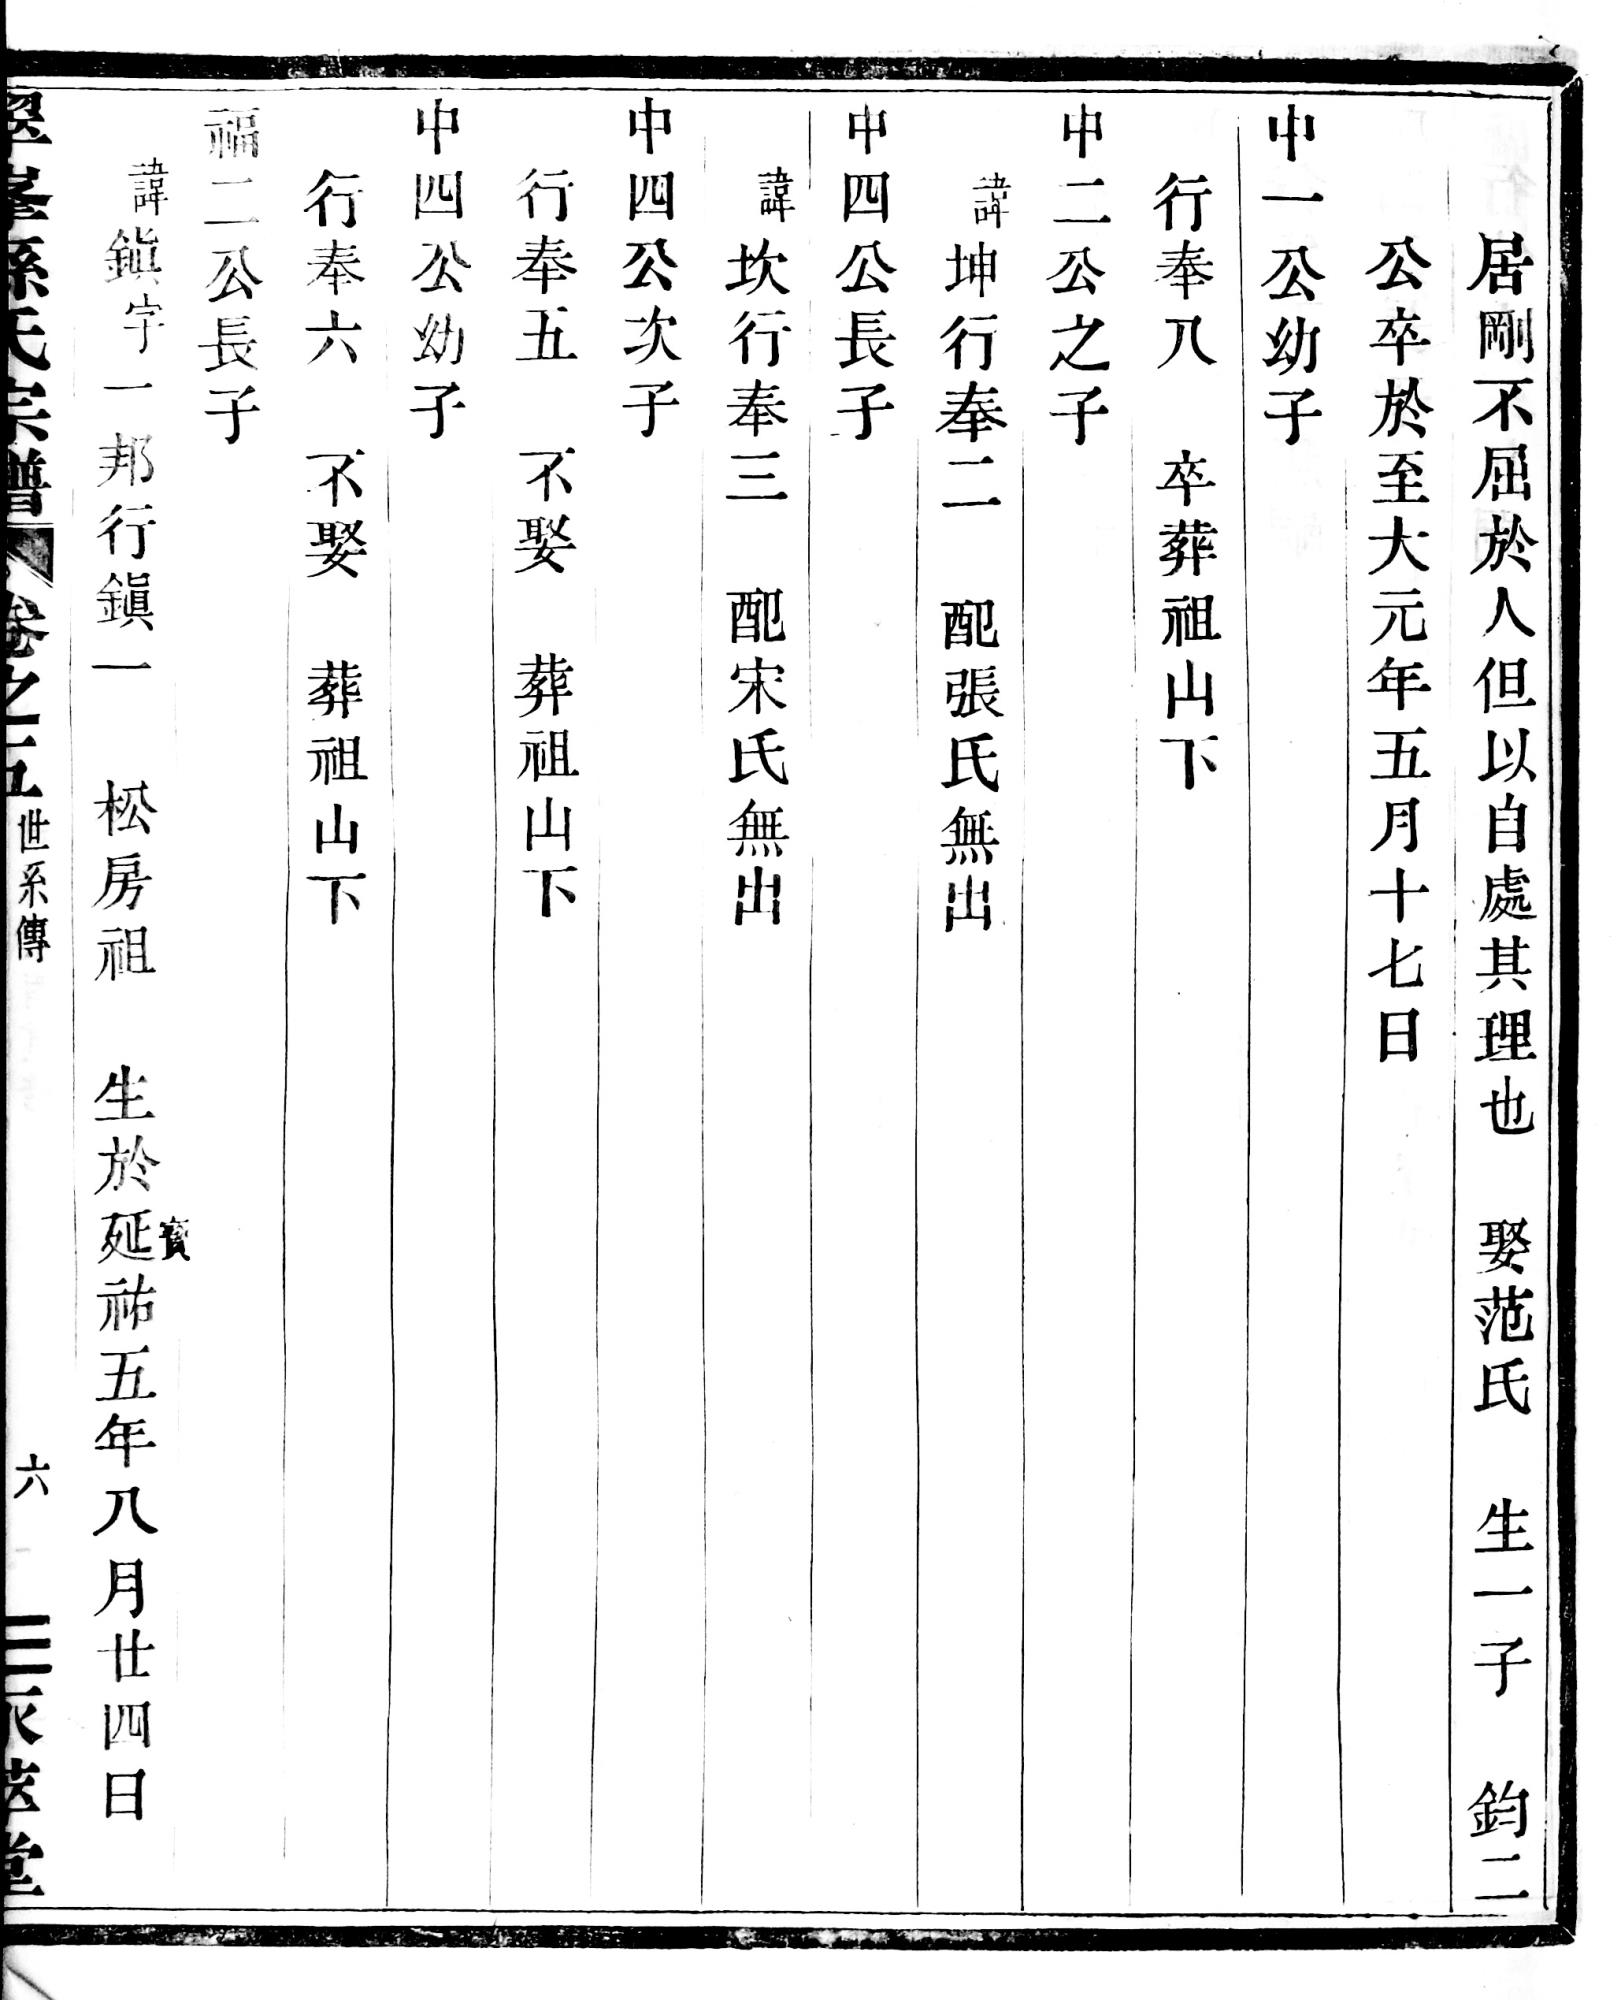 居剛不屈於人但以自處其理也　娶范氏　生一子　鈞二
公卒於至大元年五月十七日
中一公幼子
行奉八　卒葬祖山下
中二公之子
諱坤行奉二　配張氏無出
中四公長子
諱坎行奉三　配宋氏無出
中四公次子
行奉五　不娶　葬祖山下
中四公幼子
行奉六　不娶　葬祖山下
福二公長子
諱鎭字一邦行鎭一　松房祖　生於延祐五年八月廿四日
寶
孫氏宗譜　卷之五　世系傳　六　堂